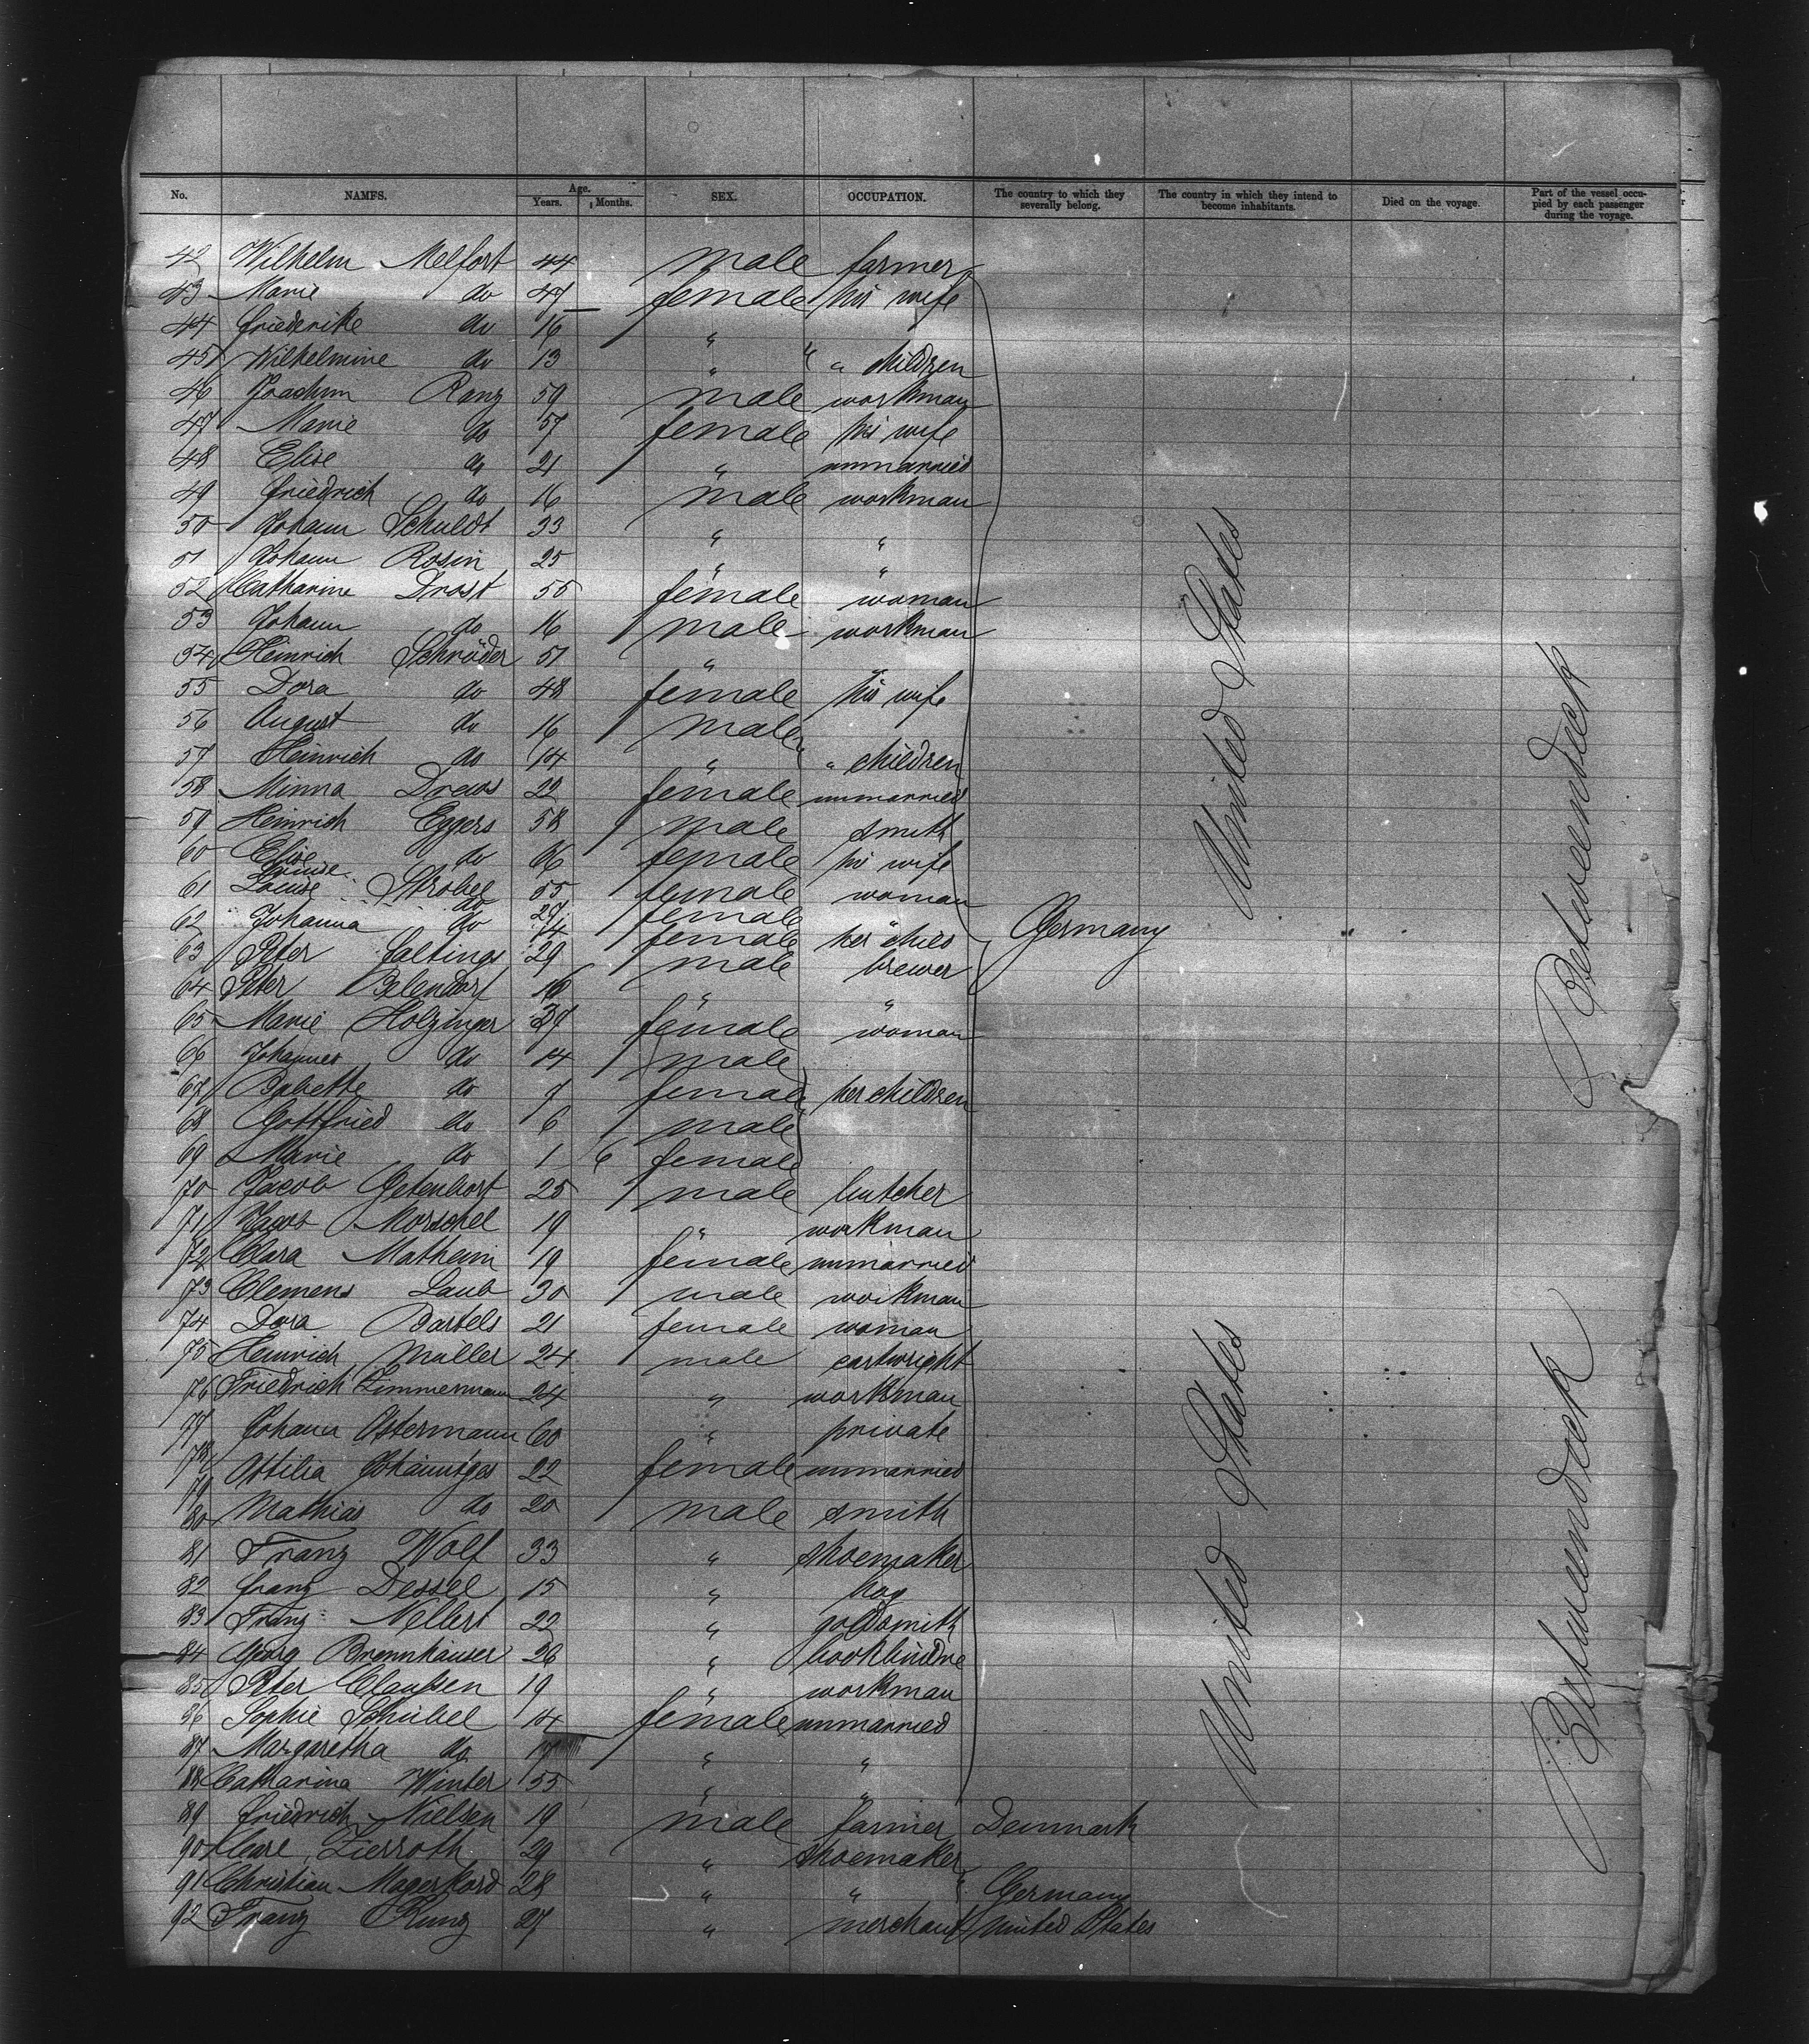 No. NAMES. Age. Years. Months. SEX. OCCUPATION. The country to which they severally belong. The country in which they intend to become inhabitants. Died on the voyage. Part of the vessel occupied by each passenger during the voyage.
42 Wilhelm Melfort 44 male farmer
43 Marie do 47 female his wife
44 Friederike do 16 "
45 Wilhelmine do 13 " " children
46 Joachim Ranz 59 male workman
47 Marie do 57 female his wife
48 Elise do 21 " unmarried
49 Friedrich do 16 male workman
50 Johann Schuldt 33 " "
51 Johann Rosin 25 " "
52 Catharine Drost 55 female woman
53 Johann do 16 male workman
54 Heinrich Schröder 51 " "
55 Dora do 48 female his wife
56 August do 16 male
57 Heinrich do 14 " " children
58 Minna Drews 22 female unmarried
59 Heinrich Eggers 58 male smith
60 Elise do 66 female his wife
61 Louise Strobel 55 female woman
Louise do 27 female "
62 Johanna do female her child
63 Peter 29 male brewer
64 Peter 16 " "
65 Marie Holzinger 37 female woman
66 Johannes do 14 male
67 Babette do 9 female her children
68 Gottfried do 6 male
69 Marie do 1 6 female
70 Jacob 25 male butcher
71 Jacob Morschel 19 " workman
72 Clara Matheim 19 female unmarried
73 Clemens Laub 30 male workman
74 Dora Bartels 21 female woman
75 Heinrich Müller 24 male cartwright
76 Friedrich Zimmermann 24 " workman
77 Johann Ostermann 60 " private
78 Ottilia 22 female unmarried
79
80 Mathias do 20 male smith
81 Franz Wolf 33 " shoemaker
82 Franz Dessel 15 " boy
83 Franz Nellert 22 " goldsmith
84 Georg Brennhäuser 26 " bookbindre
85 Peter Claußen 19 " workman
86 Sophie Schubel 14 female unmarried
87 Margaretha do " "
88 Catharina Winter 55 " "
89 Friedrich Nielsen 19 male farmer Denmark
90 Zierroth 29 " shoemaker
91 Christian Magerkord 28 " " " Germany
92 Franz Kunz 27 " merchant United States
Germany
United States
United States
Betweendeck
Betweendeck